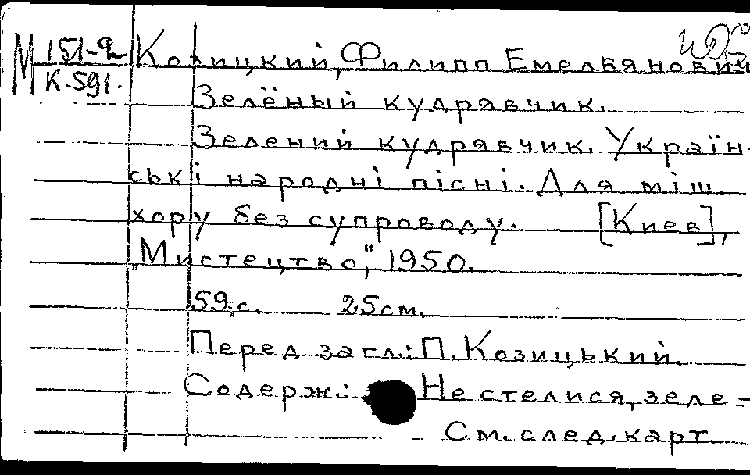 М 151-2
К.591.
Козицкий, Филипп Емельянович
Зелёный кудрявчик.
Зелений кудрявчик. Україн-
ські народні пісні. Для міш.
хору без супроводу. [Киев],
"Мистецтво", 1950.
59 с. 25см.
Перед загл.: П. Козицький.
Содерж.: Не стелися, зеле-
См. след. карт